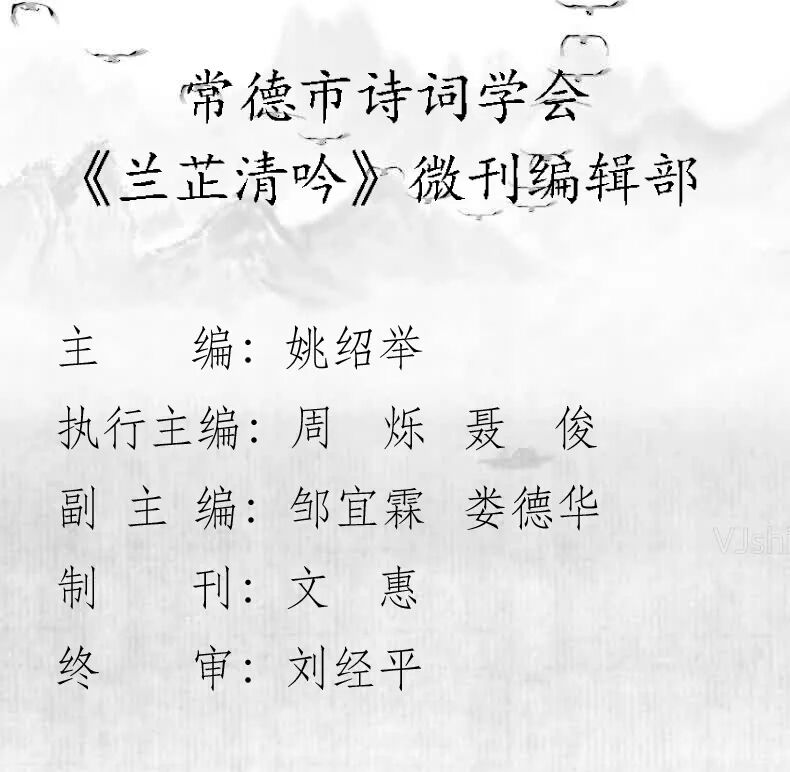 常德市诗词学会
《兰芷清吟》微刊编辑部
主　　编：姚绍举
执行主编：周　烁 聂　俊
副 主 编：邹宜霖 娄德华
制　　刊：文　惠
终　　审：刘经平
VJshi